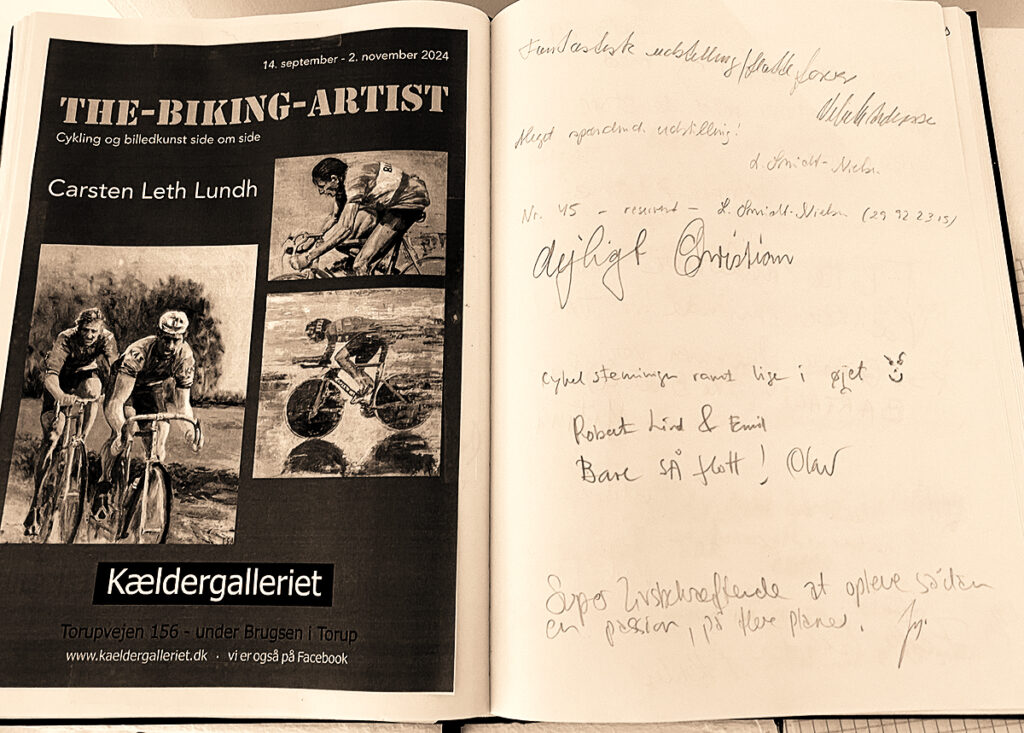 14. september - 2. november 2024
THE-BIKING-ARTIST
Cykling og billedkunst side om side
Carsten Leth Lundh
Kældergalleriet
Torupvejen 156 - under Brugsen i Torup
www.kaeldergalleriet.dk · vi er også på Facebook
Fantastisk udstilling/
Meget spændende udstilling!
L. Smidt-Nielsen
Nr. 45 - reserveret - L. Smidt-Nielsen (29 92 23 15)
dejligt Christian
Cykel stemningen ramt lige i øjet
Robert Lind & Emil
Bare SÅ flott! Olav
Super livsbekræftende at opleve sådan
en passion, på flere planer.